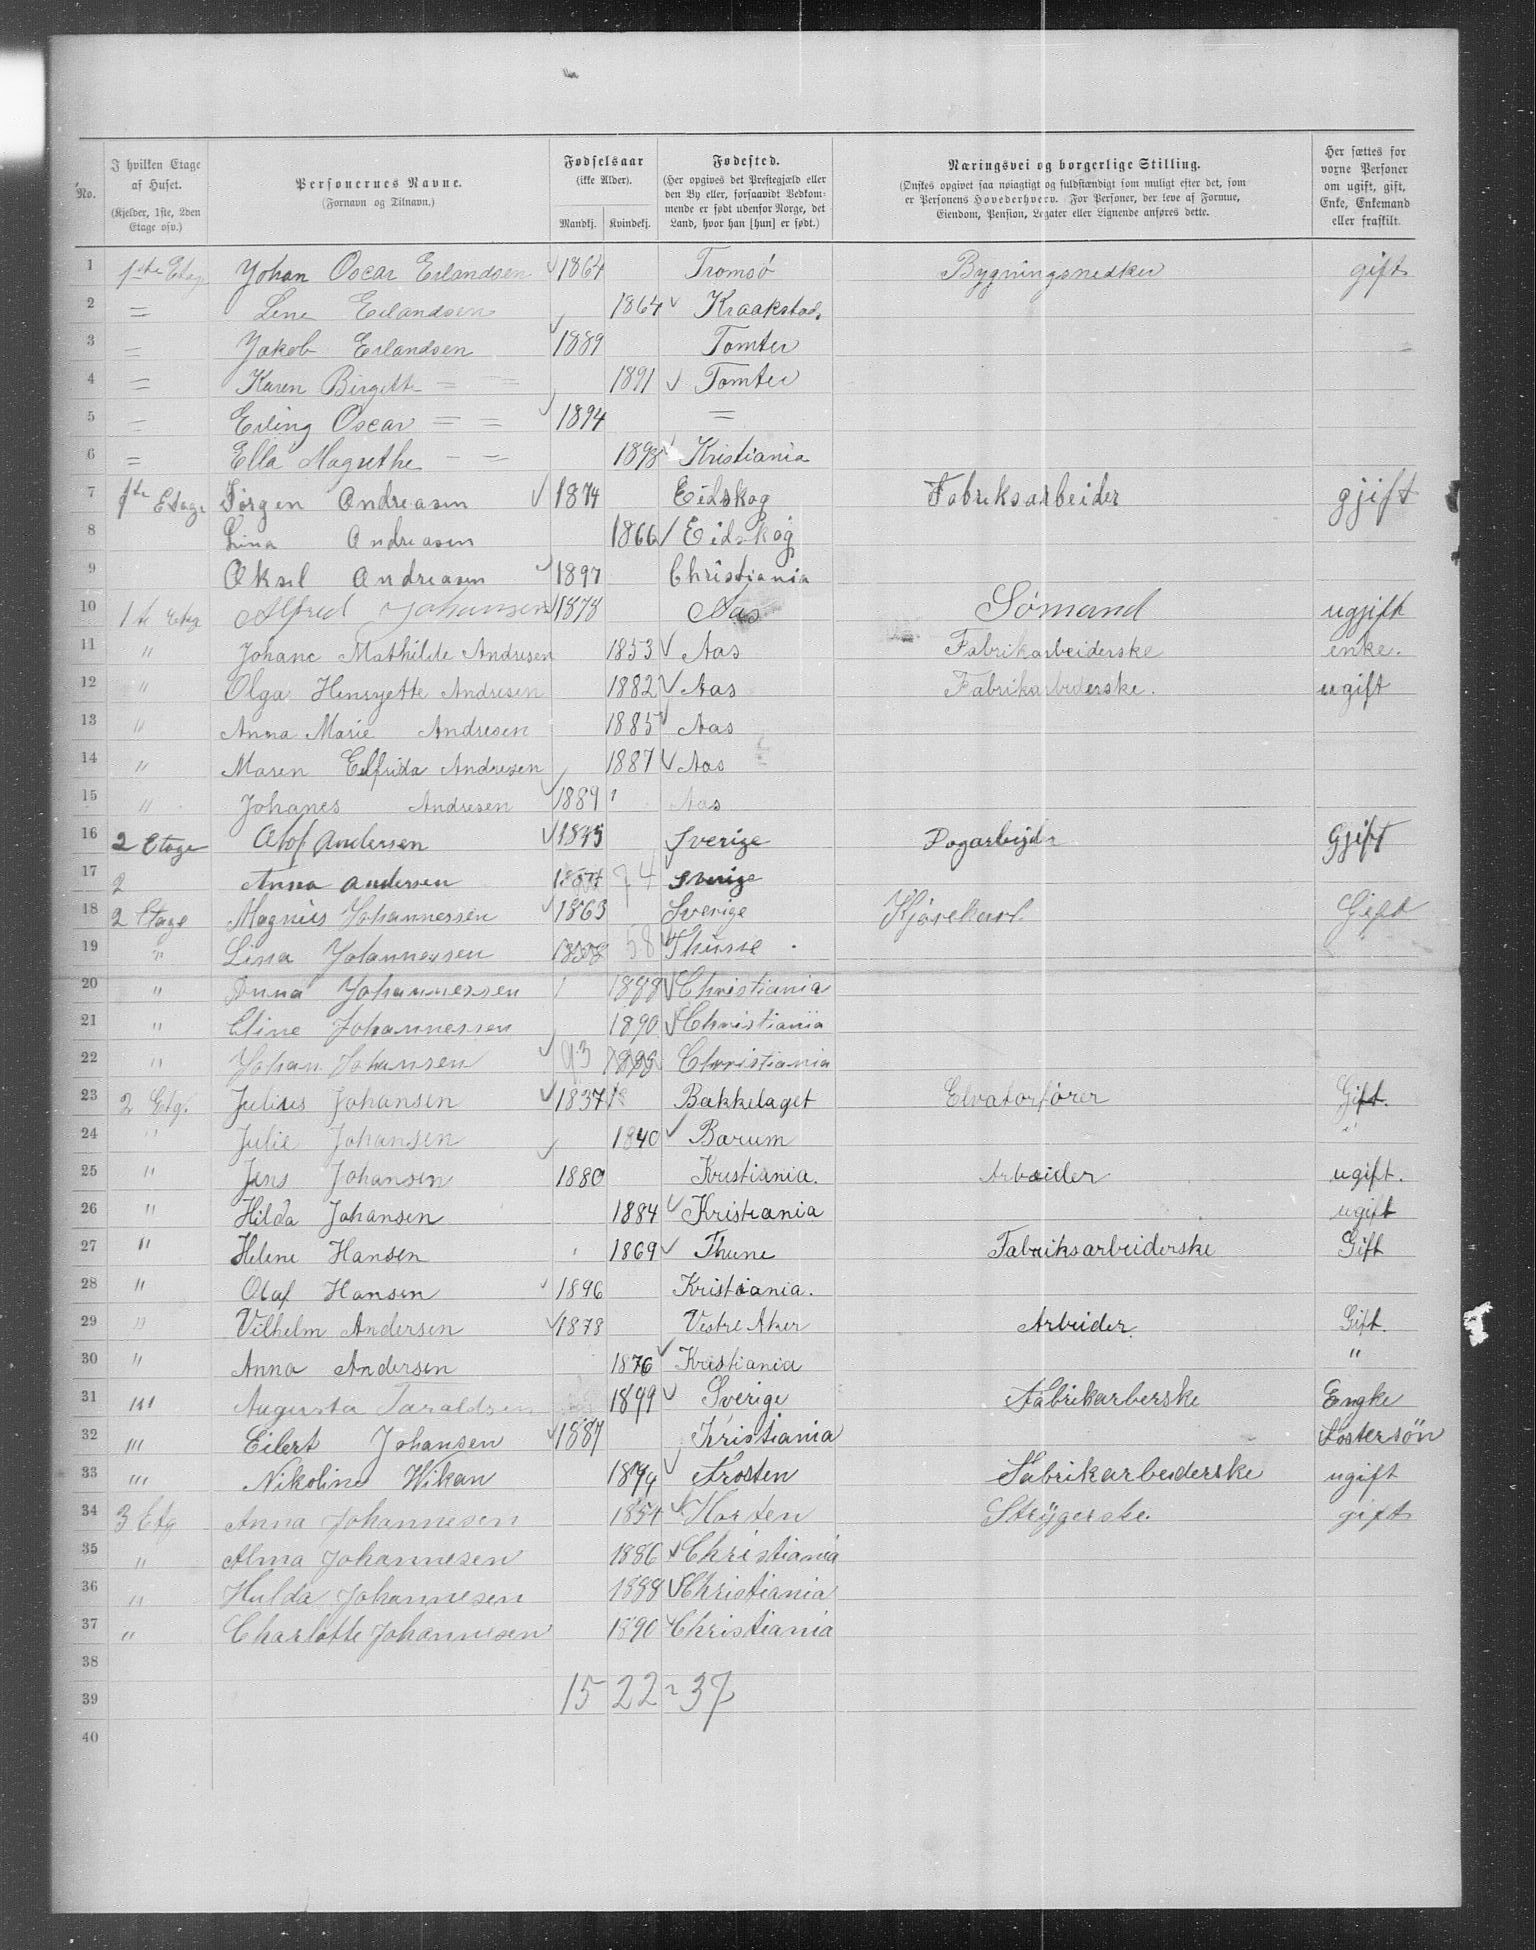 No.
I hvilken Etage af Huset.
(Kjelder, 1ste, 2den Etage osv.)
Personernes Navne.
(Fornavn og Tilnavn.)
Fødselsaar
(ikke Alder).
Mandkj. Kvindekj.
Fødested.
(Her opgives det Prestegjæld eller den By eller, forsaavidt Vedkommende er født udenfor Norge, det Land, hvor han [hun] er født.)
Næringsvei og borgerlige Stilling.
(Ønskes opgivet saa nøiagtigt og fuldstændigt som muligt efter det, som er Personens Hovederhverv. For Personer, der leve af Formue, Eiendom, Pension, Legater eller Lignende anføres dette.
Her sættes for voxne Personer om ugift, gift, Enke, Enkemand eller fraskilt.
1 1ste Etag Johan Oscar Erlandsen 1864 Tromsø Bygningsnedker gift
2 = Line Erlandsen 1864 Kraakstad.
3 = Jakob Erlandsen 1889 Tomter
4 = Karen Birgitte = = 1891 Tomter
5 = Erling Oscar = = 1894 =
6 = Ella Magrethe - = 1898 Kristiania
7 1te Etage Jørgen Andreasen 1874 Eidskog Fabriksarbeider gjift
8 Lina Andreasen 1866 Eidskog
9 Aksel Andreasen 1897 Christiania
10 1te Etag Alfred Johansen 1878 Aas Sømand ugjift
11 " Johane Mathilde Andresen 1853 Aas Fabrikarbeiderske enke.
12 " Olga Henryette Andresen 1882 Aas Fabrikarbederske. ugift
13 " Anna Marie Andresen 1885 Aas
14 " Maren Elfrida Andresen 1887 Aas
15 " Johanes Andresen 1889 Aas
16 2 Etage Olof Andersen 1845 Sverige Dagarbejder Gjift
17 2 Anna Andersen 74 Sverige
18 2 Etage Magnus Johannessen 1863 Sverige Kjørekarl Gift
19 " Lina Johannessen 1858 58 Thune
20 " Anna Johannessen 1888 Christiania
21 " Eline Johannessen 1890 Christiania
22 " Johan Johansen 93 Christiania
23 2 Etg. Julius Johansen 1837 Bakkelaget Elvatorfører Gift.
24 " Julie Johansen 1840 Barum "
25 " Jens Johansen 1880 Kristiania. Arbeider ugift.
26 " Hilda Johansen 1884 Kristiania ugift
27 " Helene Hansen 1869 Thune Fabriksarbeiderske Gift
28 " Olaf Hansen 1896 Kristiania.
29 " Vilhelm Andersen 1878 Vestre Aker Arbeider. Gift.
30 " Anna Andersen 1876 Kristiania "
31 "' Augusta Taraldsen 1899 Sverige Fabrikarberske Engke
32 "' Eilert Johansen 1887 Kristiania Fostersön
33 "' Nikoline Wikan 1874 Frosten Fabrikarbeiderske ugift
34 3 Etg Anna Johannesen 1854 Horten Strygerske. gift
35 " Alma Johannesen 1886 Christiania
36 " Hulda Johannesen 1888 Christiania
37 " Charlotte Johannesen 1890 Christiania
38
39 15 22 ~ 37
40